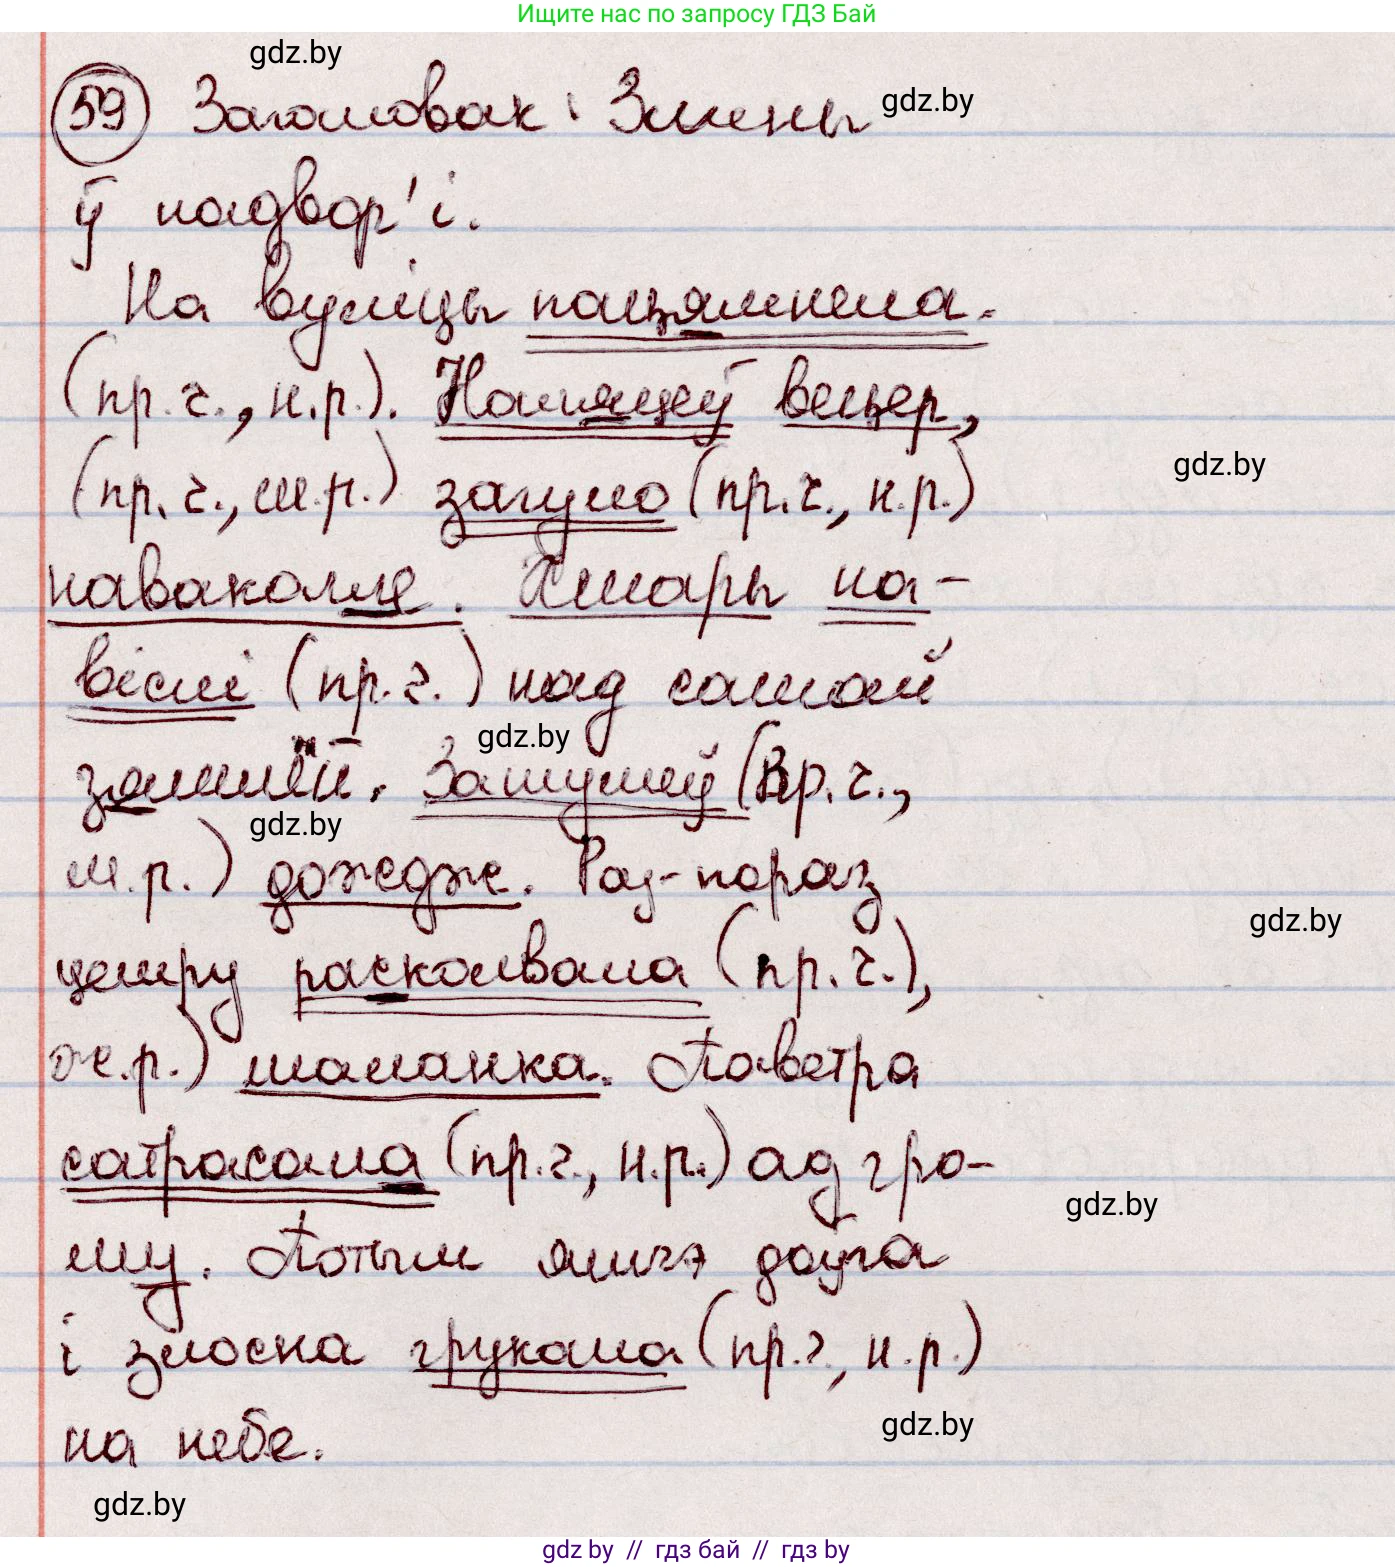 Ищите нас по запросу ГДЗ Бай
gdz.by
59 Загаловак: Змены gdz.by
ў надвор'і.
На вуліцы пацямнела.
(пр.ч., н.р.). Наляцеў вецер,
(пр.ч., м.р.) загуло (пр.ч., н.р.) gdz.by
наваколле. Хмары на-
віслі (пр.ч.) над самай
gdz.by
зямлёй. Зашумеў (пр.ч.,
gdz.by
м.р.) дождж. Раз-пораз
gdz.by
цемру расколвала (пр.ч.),
ж.р.) маланка. Паветра
сатрасала (пр.ч., н.р.) ад гро-
gdz.by
му. Потым яшчэ доўга
і злосна грукала (пр.ч, н.р.)
на небе. gdz.by
gdz.by
gdz by // гдз бай // гдз by